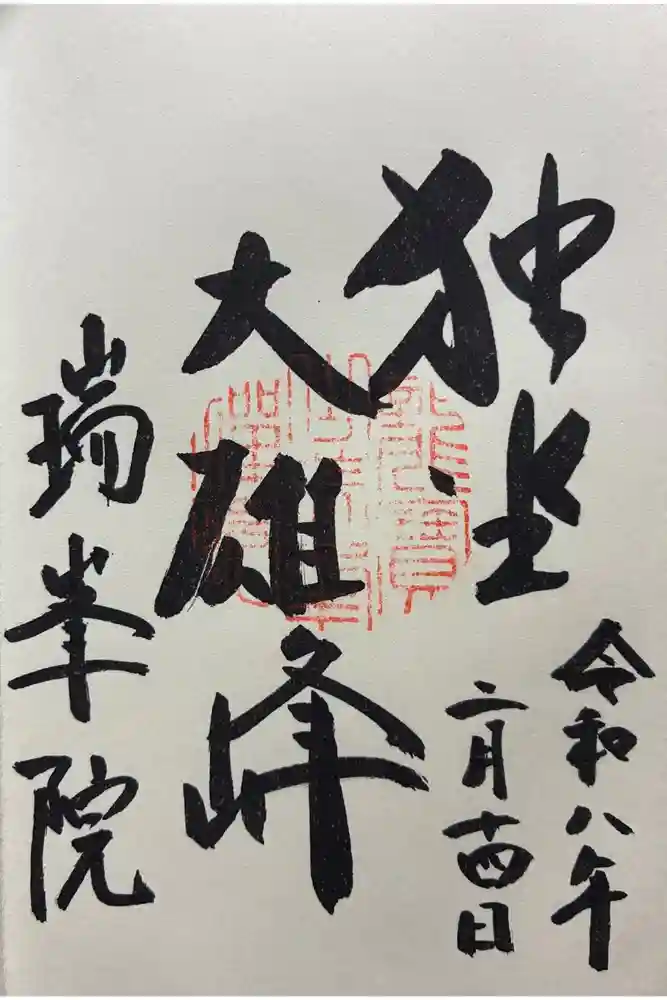 独坐
大雄峰
令和八年
二月十四日
瑞峯院